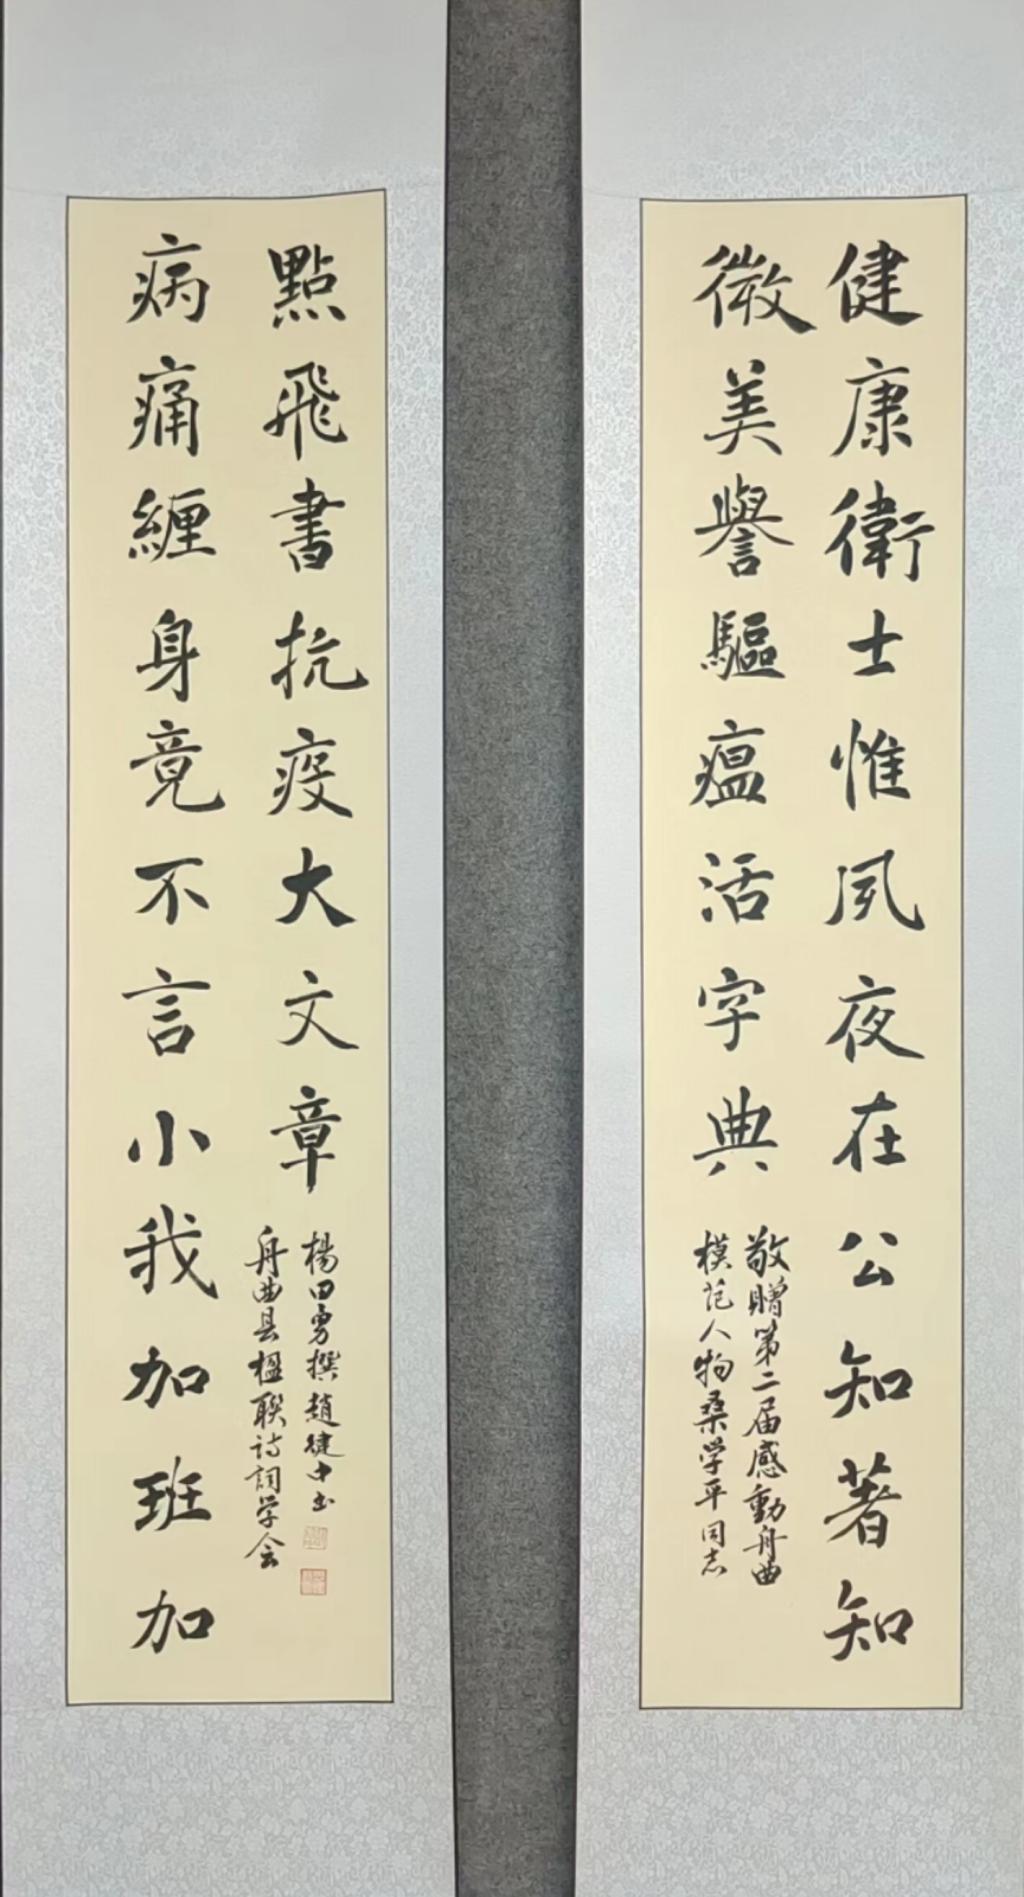 健康衛士惟夙夜在公知著知
微美譽驅瘟活字典
敬贈第二届感動舟曲
模范人物桑学平同志
病痛緾身竟不言小我加班加
點飛書抗疫大文章
楊田勇撰趙健中书
舟曲县楹聯诗詞学会